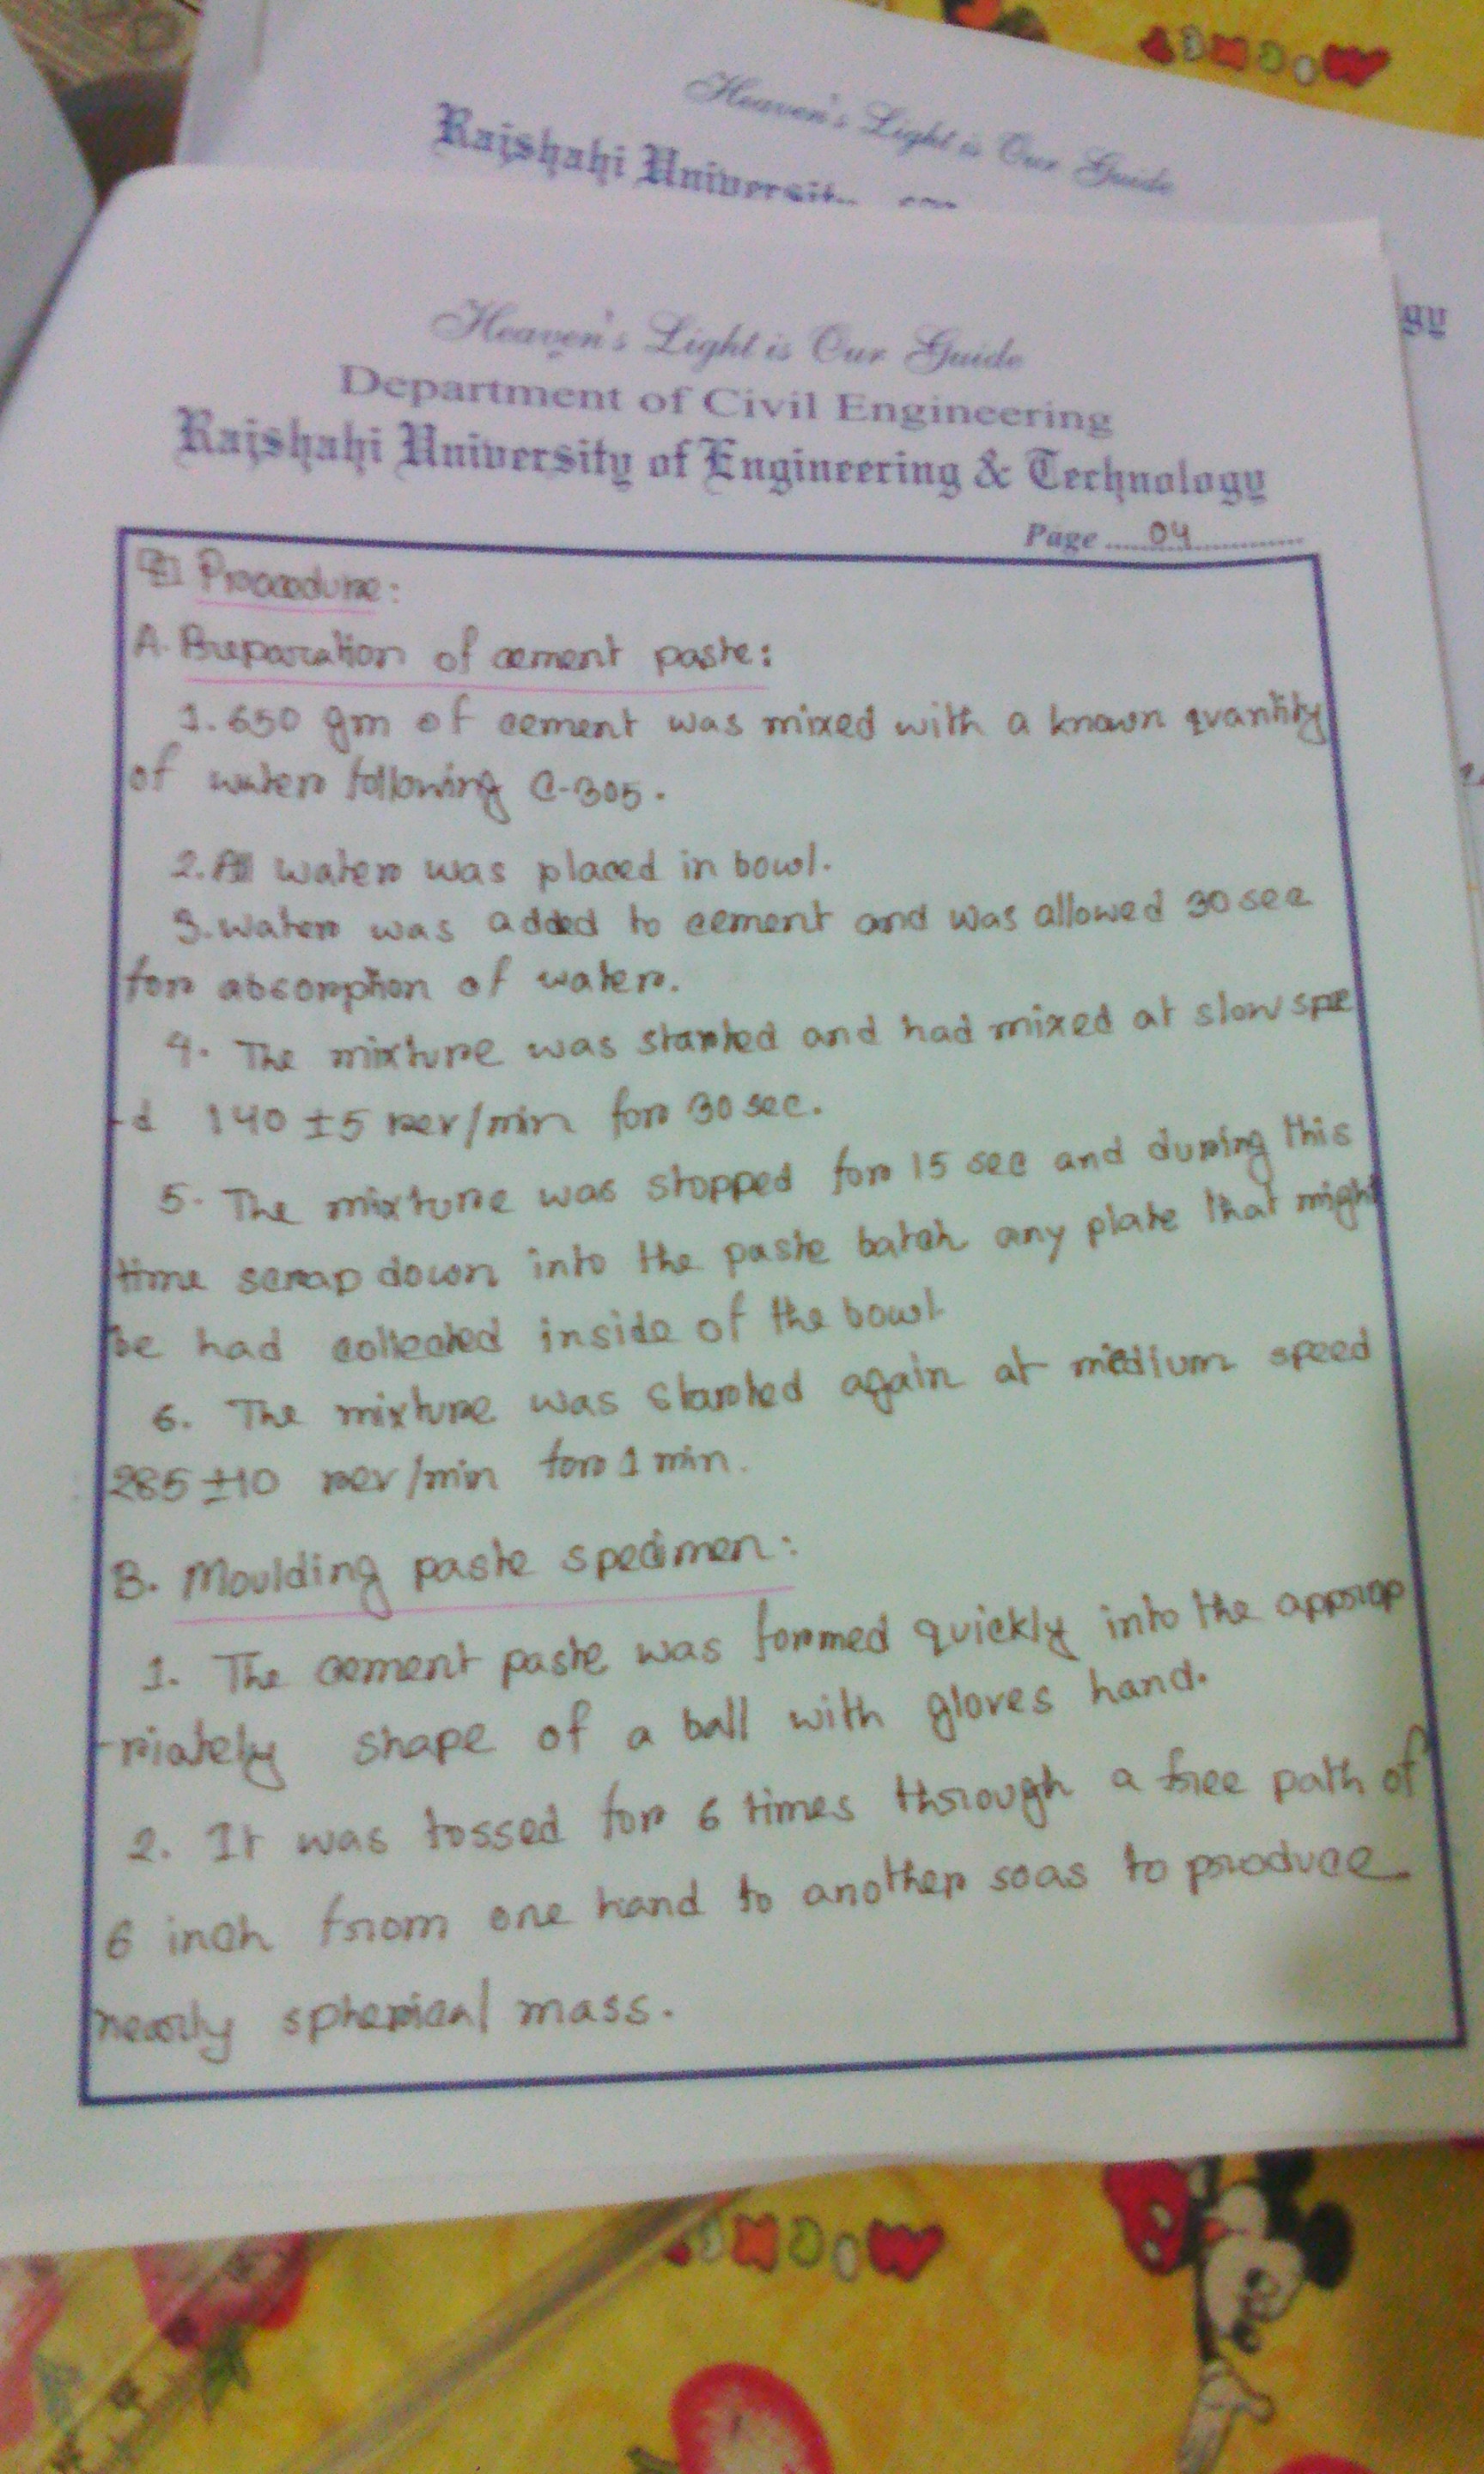 Heaven's Light is Our Guide
Rajshahi
gy
Heaven's Light is Our Guide
Department of Civil Engineering
Rajshahi University of Engineering & Technology
Page ..... 04 .............
Procedure:
A. Preparation of cement paste:
1. 650 gm of cement was mixed with a known quantity
of water following C-305.
2. All water was placed in bowl.
3. Water was added to cement and was allowed 30 sec
for absorption of water.
4. The mixture was started and had mixed at slow spee
-d 140 ±5 rev/min for 30 sec.
5. The mixture was stopped for 15 sec and during this
time scrap down into the paste batch any plate that might
be had collected inside of the bowl.
6. The mixture was started again at medium speed
285 ±10 rev/min for 1 min.
B. Moulding paste specimen:
1. The cement paste was formed quickly into the approp
-riately shape of a ball with gloves hand.
2. It was tossed for 6 times through a free path of
6 inch from one hand to another soas to produce
nearly spherical mass.